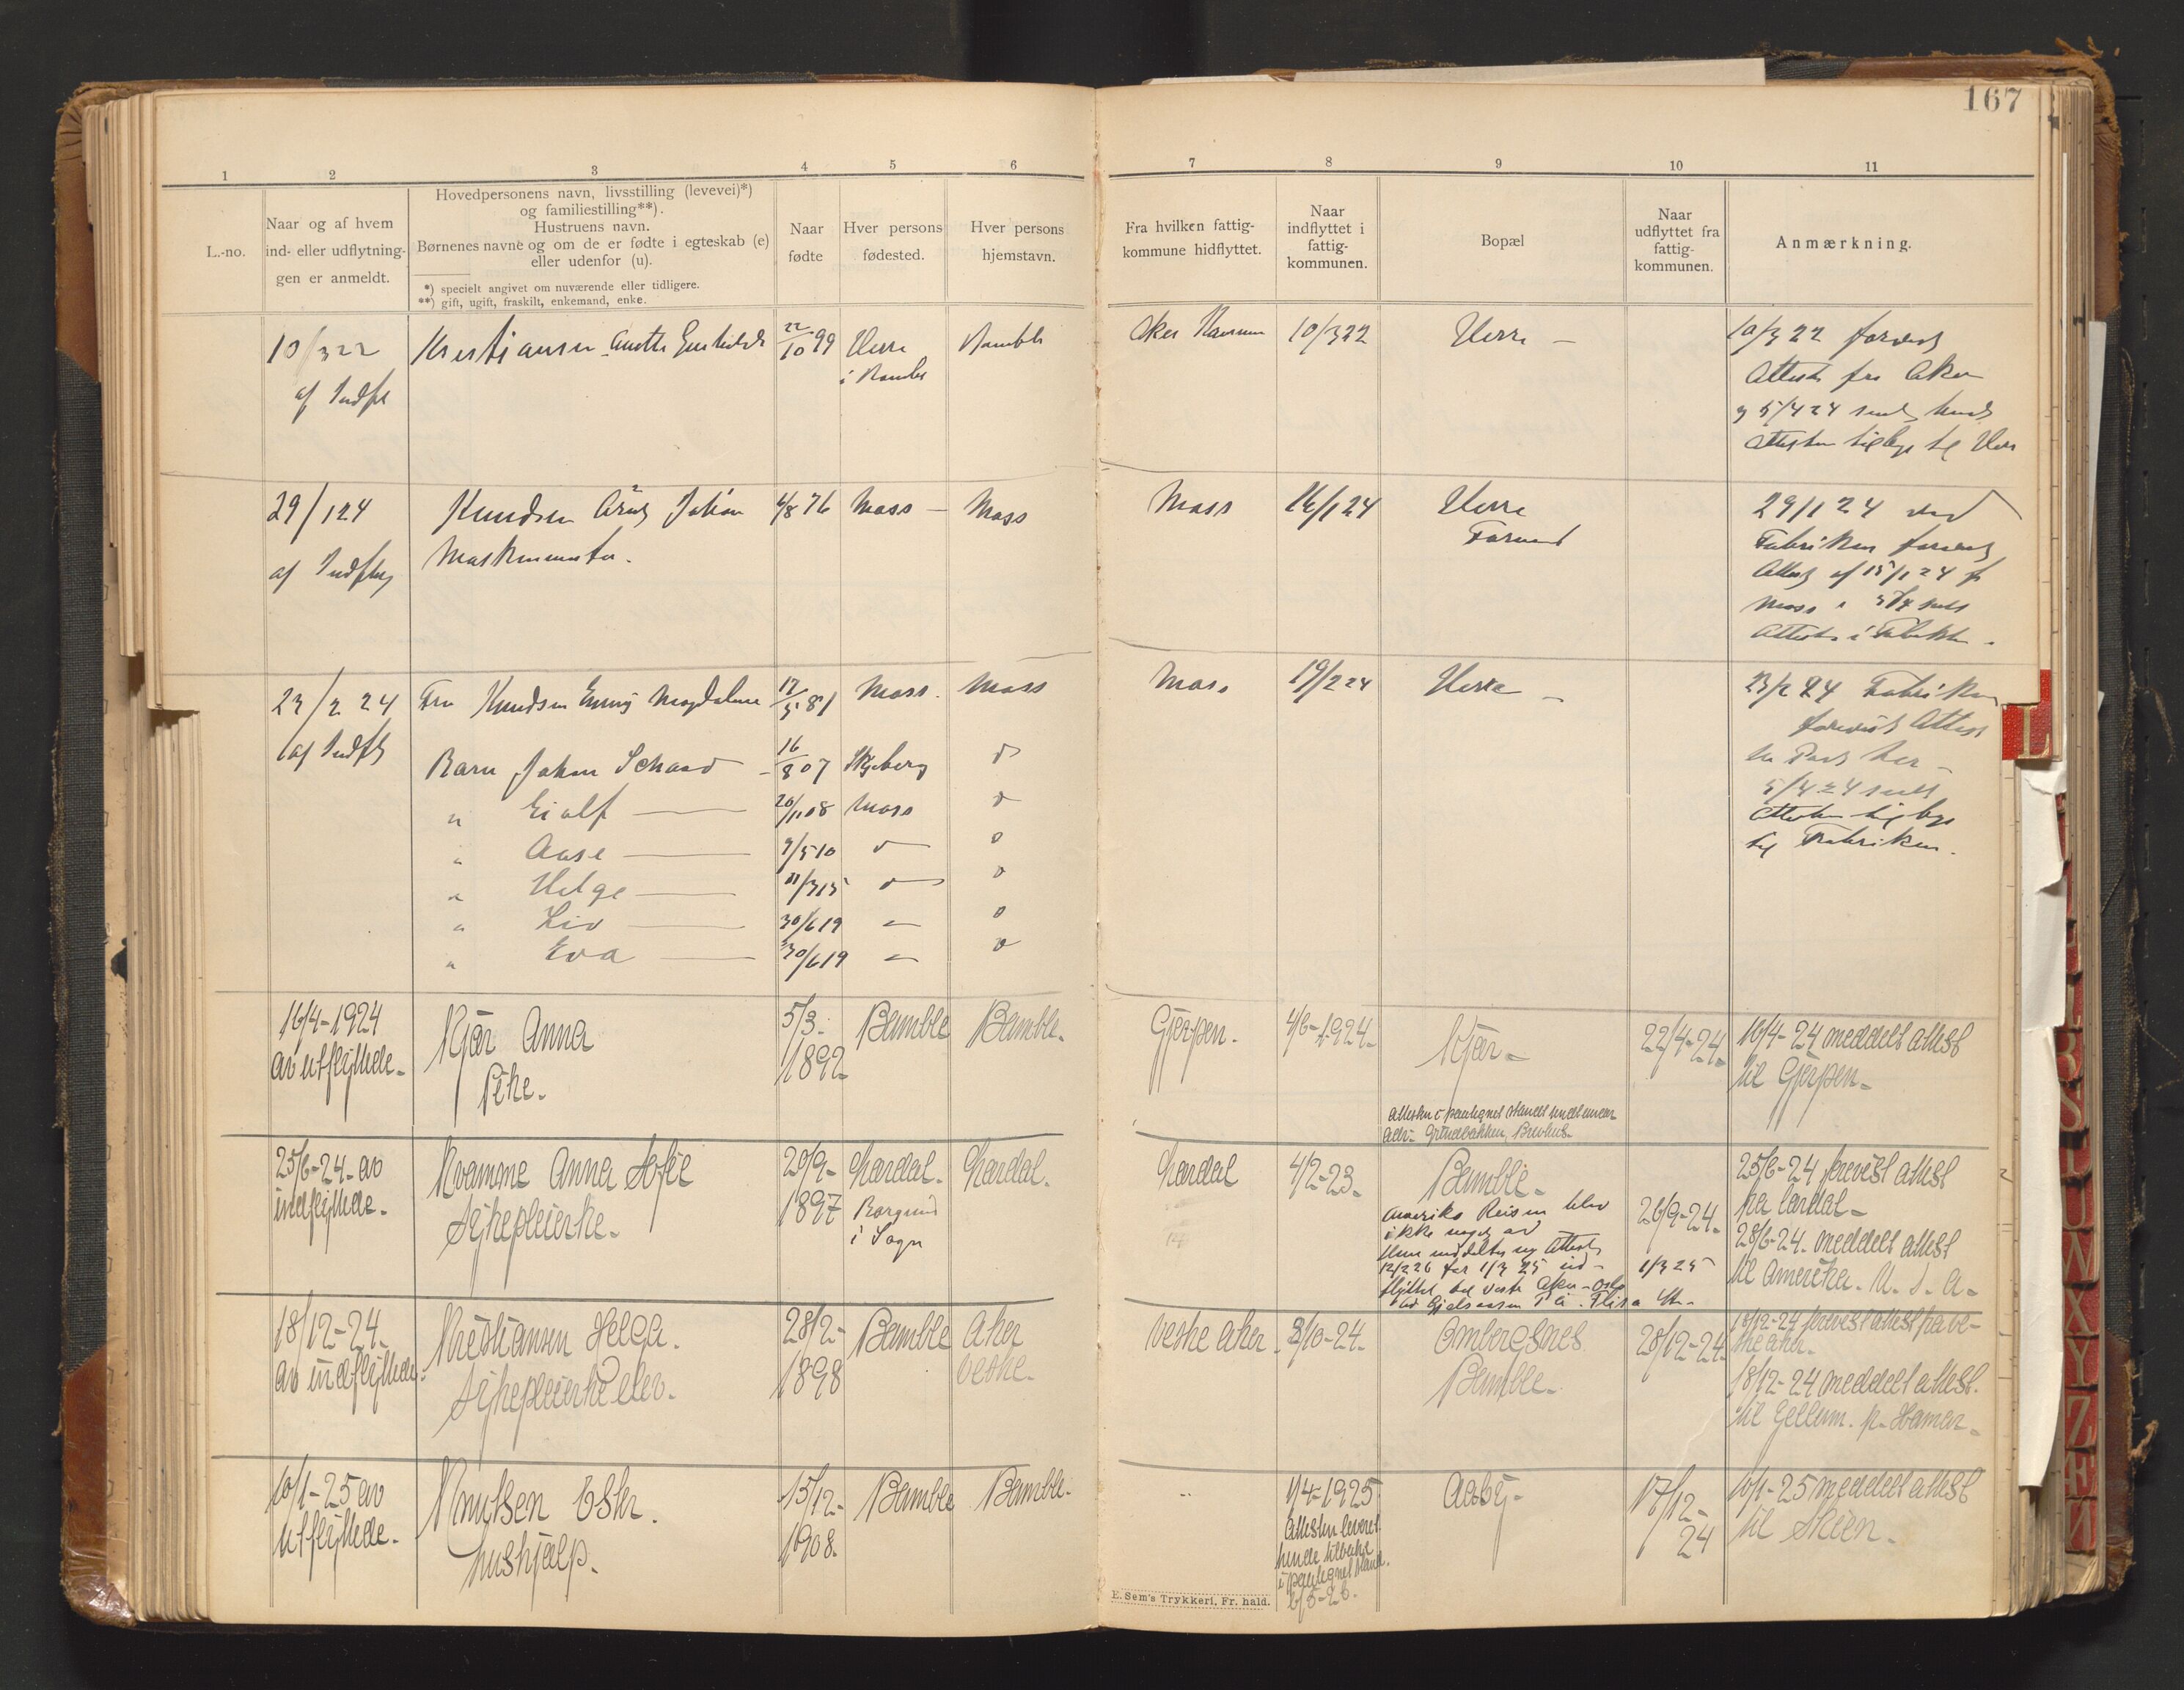 167
1 2 3 4 5 6 7 8 9 10 11
L.-no.
Naar og af hvem
ind- eller udflytnin-
gen er anmeldt.
Hovedpersonens navn, livsstilling (levevei)*)
og familiestilling**).
Hustruens navn.
Børnenes navne og om de er fødte i egteskab (e)
eller udenfor (u).
*) specielt angivet om nuværende eller tidligere.
**) gift, ugift, fraskilt, enkemand, enke.
Naar
fødte
Hver persons
fødested.
Hver persons
hjemstavn.
Fra hvilken fattig-
kommune hidflyttet.
Naar
indflyttet i
fattig-
kommunen.
Bopæl
Naar
udflyttet fra
fattig-
kommunen.
Anmærkning.
10/3 22
af Indfl
Kristiansen Anette
22/10 99
Herre
i Bamble
Bamble
Aker
10/3 22
Herre –
10/3 22 forevist
Attest fra Aker
5/4 24 sendt
Attesten tilbage til Herre
29/1 24
af Indflyt
Knudsen Arnt Johan
Maskinmester.
4/8 76
Moss –
Moss
Moss
16/1 24
Herre
29/1 24 ved
Fabriken forevist
Attest af 15/1 24 fr
Moss
Attesten i
23/2 24
af Indfl
Fru Knudsen Emmy Magdalene
17/5 81
Moss.
Moss
Moss
19/2 24
Herre –
23/2 24 Fabriken
forevist Attest
5/4 24 sendt
Attesten tilbage
til Fabriken.
Barn Johan Schaad –
16/8 07
Skjeberg
" Eialf
20/11 08
Moss
" Aase
9/5 10
" Helge
11/3 15
" Liv
30/6 19
" Eva
30/6 19
16/4-1924
av utflyttede.
Kjær Anna
Pike.
5/3-
1892
Bamble
Bamble.
Gjerpen.
4/6-1924.
Kjær –
22/4-24.
16/4-24 meddelt attest
til Gjerpen –
25/6-24. av
indflyttede.
Kvamme Anna Sofie
Sykepleierske.
29/9-
1897
Lardal.
Borgund
i Sogn
Lardal.
Lardal
4/2-23.
Bamble.
Amerika Reisen blev
ikke noget av
Hun meddeltes ny Attest
12/2 26 for 1/3 25 ud-
flyttet til Vestre Aker – Oslo
26/9-24.
1/3 25
25/6-24 forevist attest
fra Lardal –
28/6-24. meddelt attest
til Amerika. U. S. A –
18/12-24.
av indflyttede.
Kristiansen Helga.
Sykepleierske elev.
28/2-
1898
Bamble
Aker
Vestre.
Vestre Aker.
3/10-24.
Ombergsnes
Bamble.
28/12-24.
18/12-24 forevist attest fra Ve-
stre Aker.
18/12-24 meddelt attest.
til Hamar.
10/1-25 av
utflyttede.
Knutsen Ester.
hushjælp.
15/12-
1908.
Bamble
Bamble.
1/4-1925
Attesten leveret
hende tilbake
6/5-26.
Aaby –
17/12-
24
10/1-25 meddelt attest
til Skien.
E. Sem's Trykkeri, Fr. hald.
L
U
W
X
Y
Z
Æ